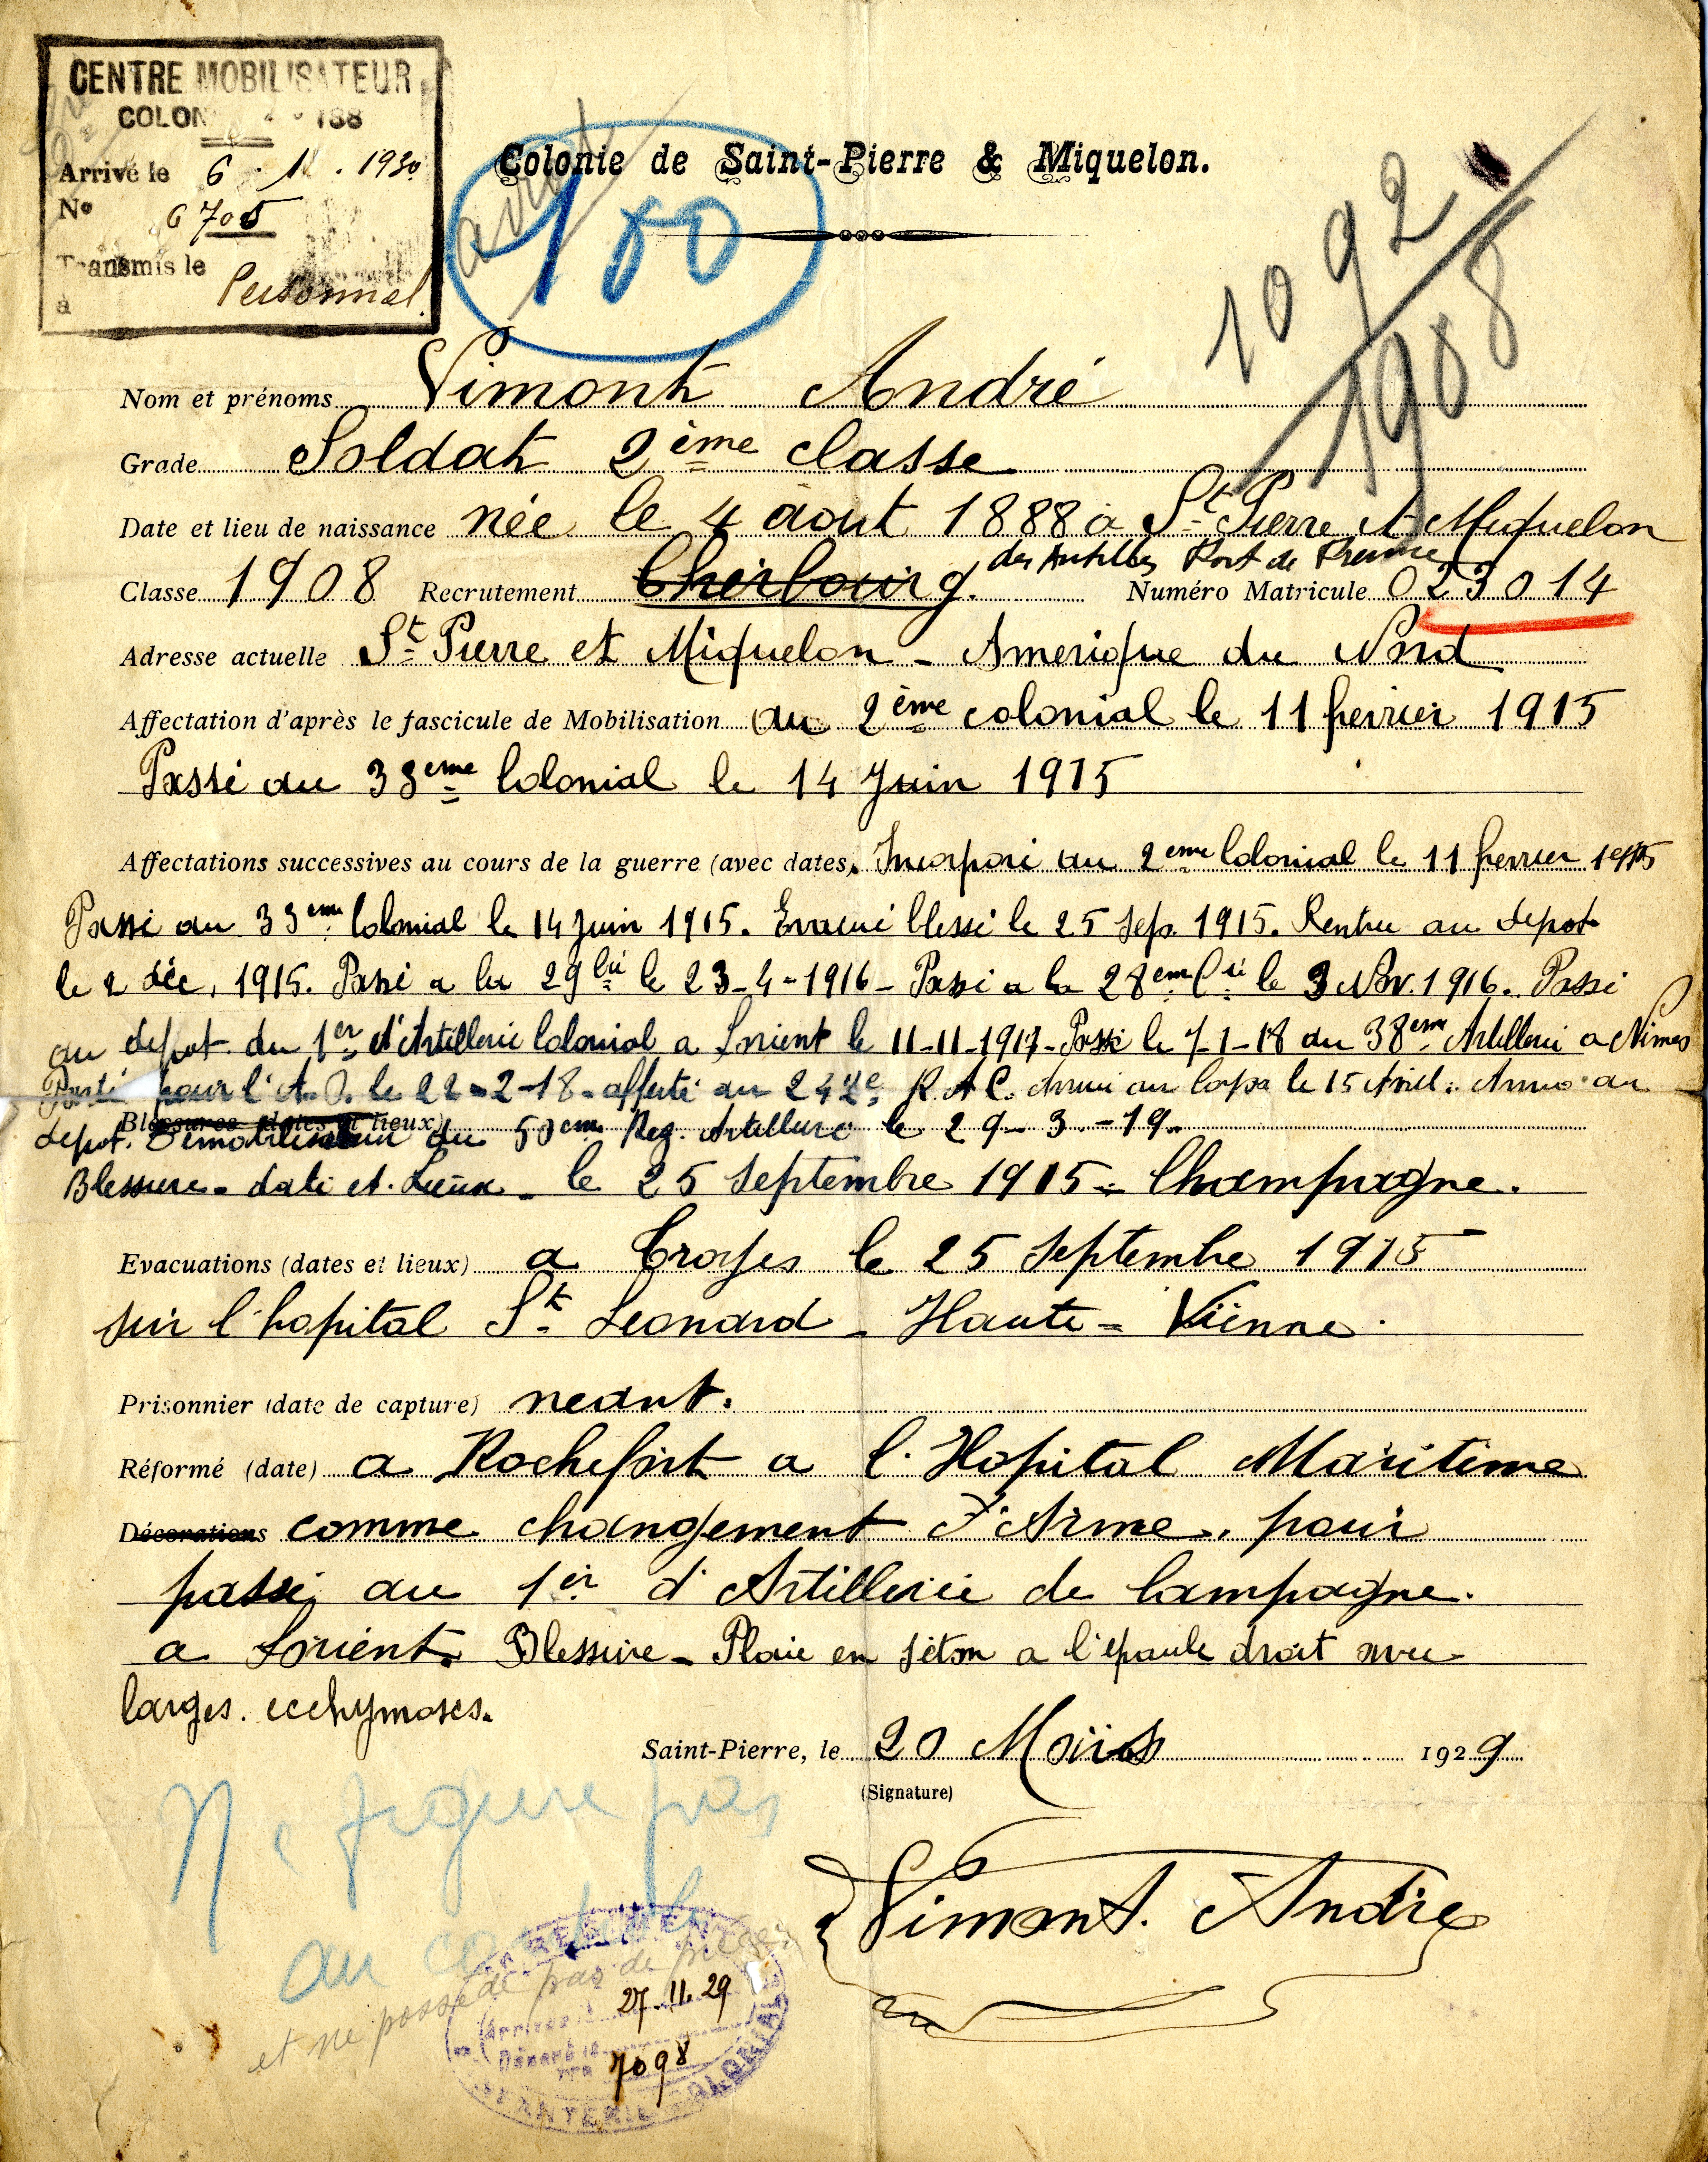 CENTRE MOBILISATEUR
COLON 188
Arrivé le 6 . 11 . 1930
N° 6705
Transmis le
à Personnel
Colonie de Saint-Pierre & Miquelon.
100
1092
1908
Nom et prénoms Vimont André
Grade Soldat 2ème classe
Date et lieu de naissance née le 4 aout 1888 a St Pierre et Miquelon
des Antilles Fort de France
Classe 1908 Recrutement Cherbourg. Numéro Matricule 023014
Adresse actuelle St Pierre et Miquelon - Amerique du Nord
Affectation d'après le fascicule de Mobilisation au 2ème colonial le 11 fevrier 1915
Passé au 33eme Colonial le 14 Juin 1915
Affectations successives au cours de la guerre (avec dates) Incorporé au 2eme Colonial le 11 fevrier 1915
Passé au 33eme Colonial le 14 Juin 1915. Evacué blessé le 25 Sep. 1915. Rentré au depot
le 2 déc, 1915. Passé a la 29 Cie le 23-4-1916 - Passé a la 28em Cie le 3 Nov. 1916. Passé
au depot du 1er d'Artillerie Colonial a Lorient le 11-11-1917 - Passé le 7-1-18 au 38eme Artillerie a Nimes
pour l'A.O. le 22-2-18 - affecté au 242e R.A.C. Arrivé au Corps le 15 Avril. Arrivé au
Blessures (dates et lieux)
depot. du 50em Reg. Artillerie le 29-3-19.
Blessure - date et Lieux - le 25 Septembre 1915 - Champagne.
Evacuations (dates et lieux) a Troyes le 25 Septembre 1915
sur l'hopital St Leonard - Haute - Vienne.
Prisonnier (date de capture) neant.
Réformé (date) a Rochefort a l'Hopital Maritime
Décorations comme changement d'Arme. pour
passé au 1er d'Artillerie de Campagne.
a Lorient. Blessure - Plaie en séton a l'épaule droit avec
larges. ecchymoses.
Saint-Pierre, le 20 Mars 1929
(Signature)
Vimont. André
Ne figure pas
au
et ne possède pas de pièces
27-11-29
Arrivée
Départ
7098
INFANTERIE COLONIALE